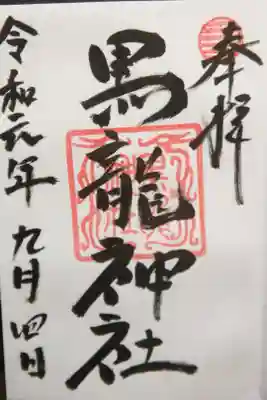 奉拝
黒龍神社
令和元年九月四日